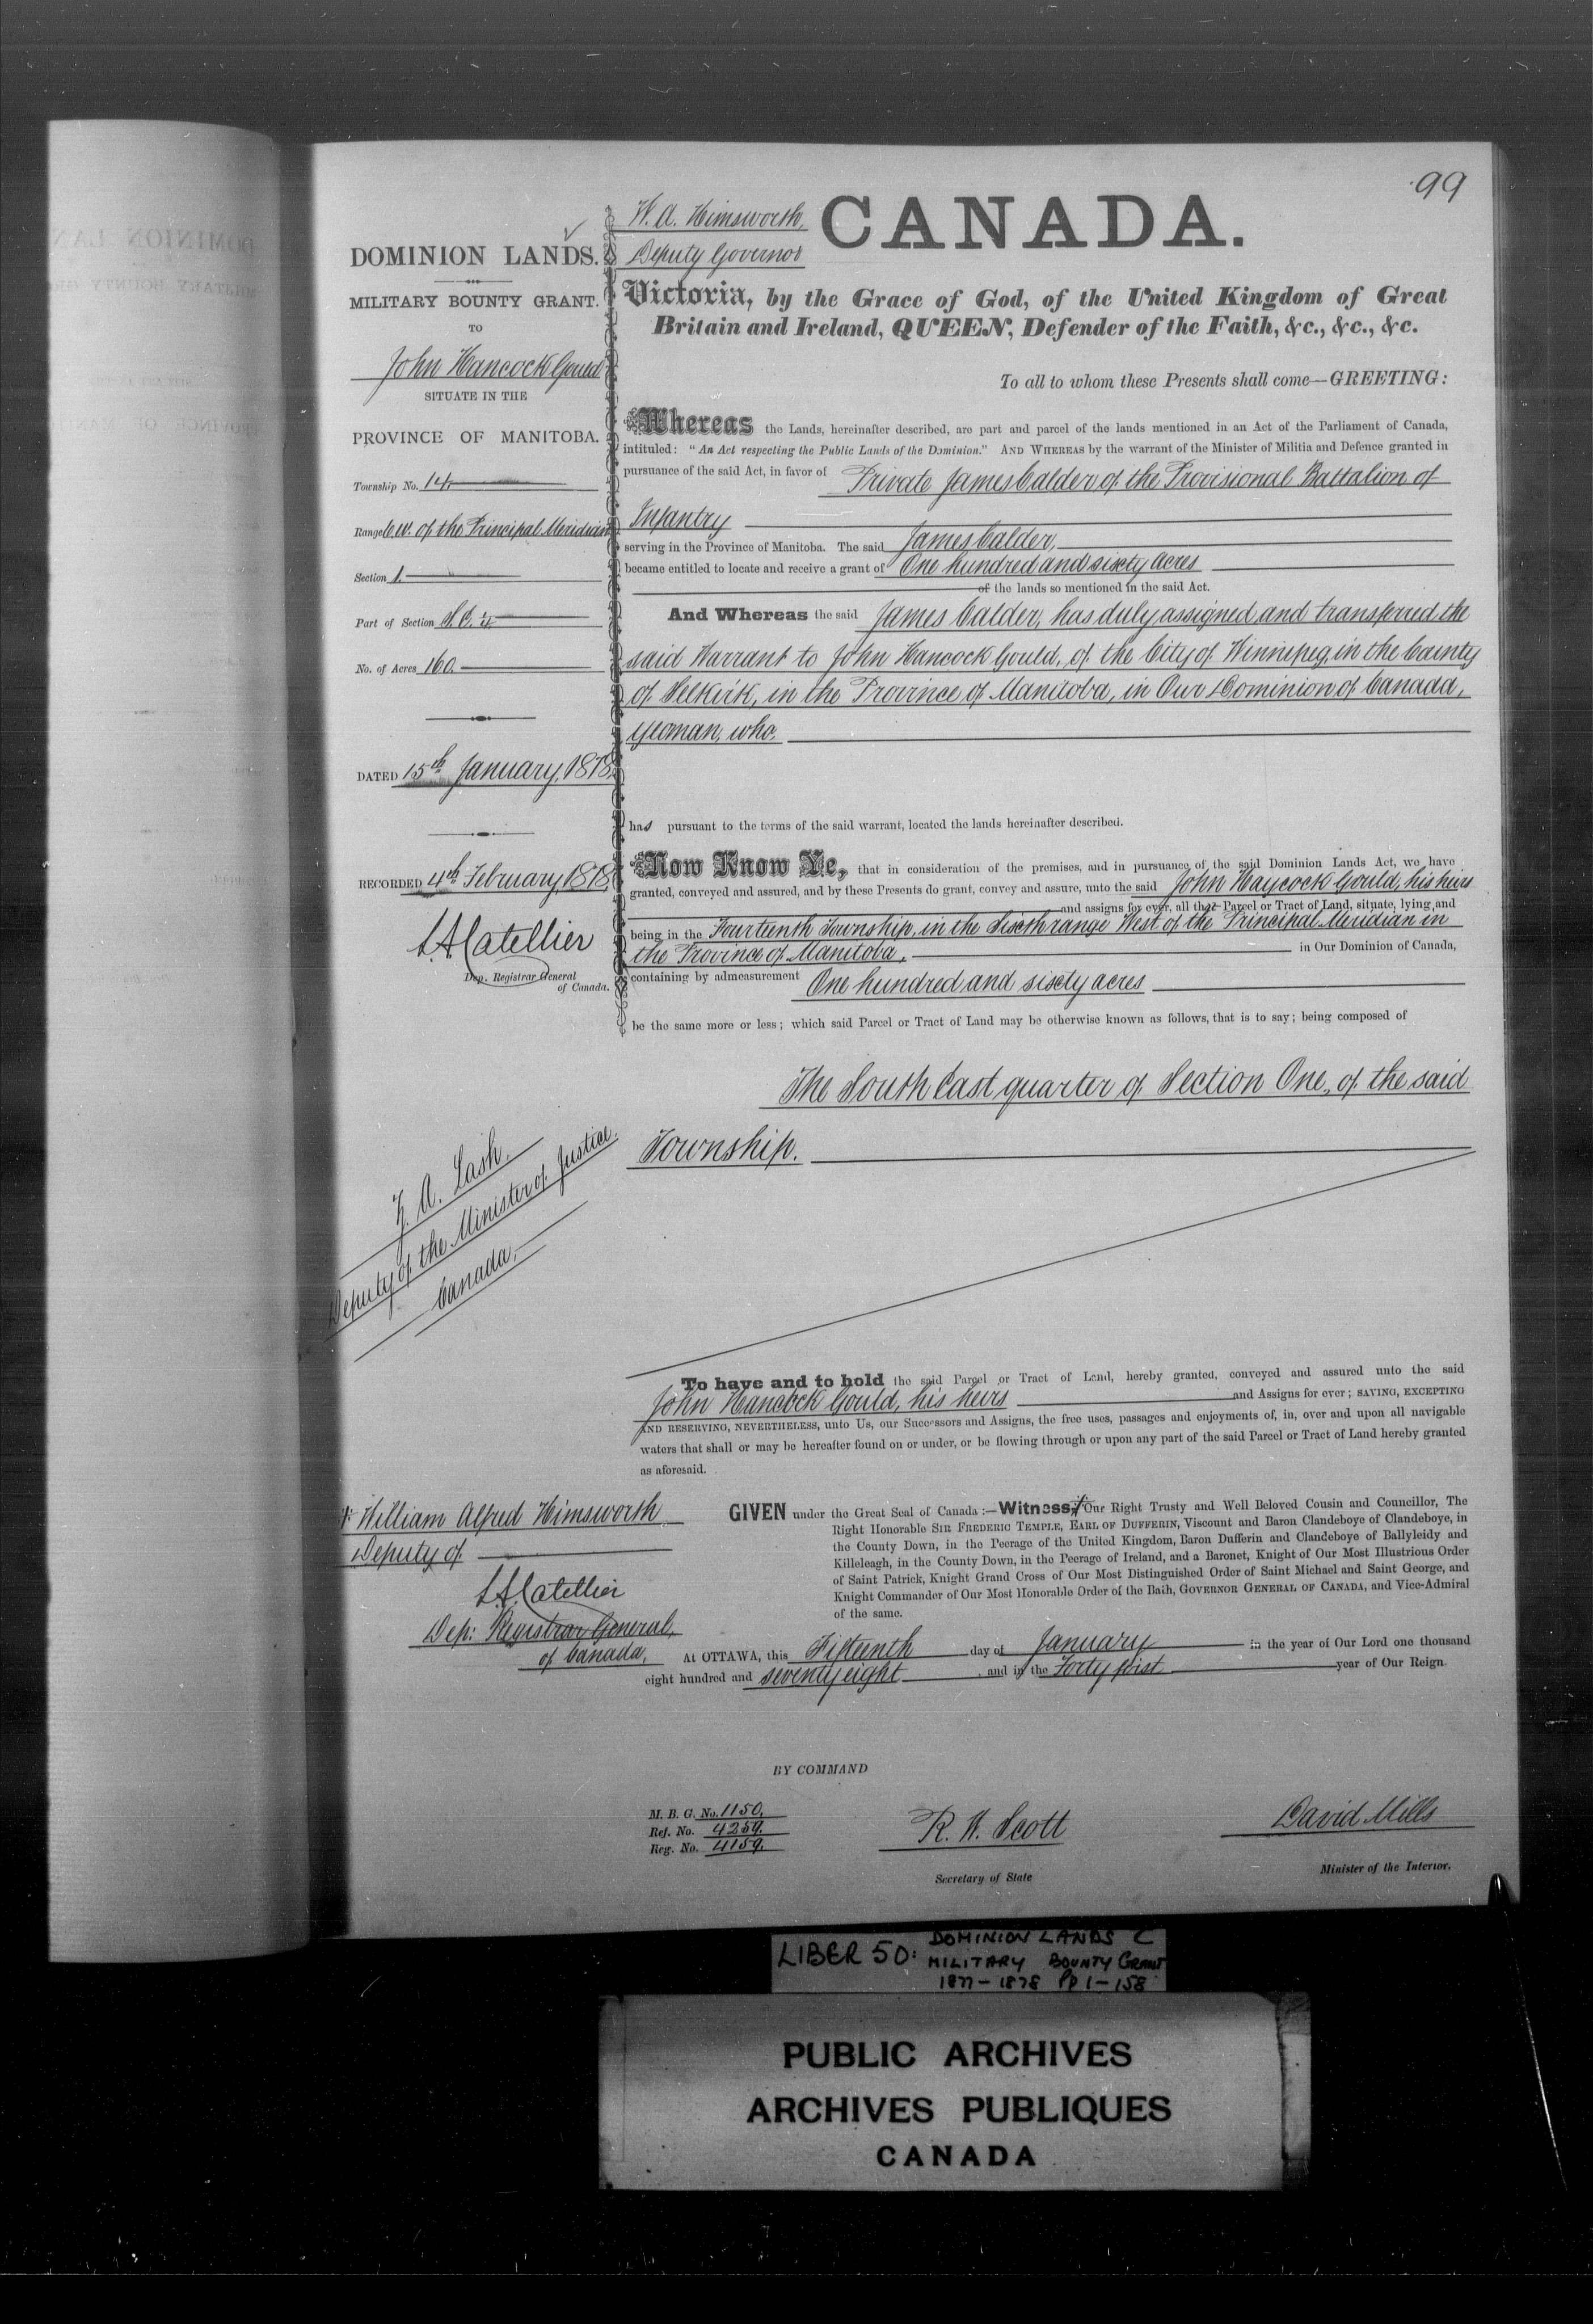 99
W. A. Himsworth,
Deputy Governor
CANADA.
DOMINION LANDS.
MILITARY BOUNTY GRANT.
TO
John Hancock Gould
SITUATE IN THE
PROVINCE OF MANITOBA.
Township No. 14.
Range 6.W. of the Principal Meridian
Section 1.
Part of Section S.E. ¼.
No. of Acres 160.
DATED 15th January, 1878.
RECORDED 4th February, 1878
L.A. Catellier
Dep. Registrar General
of Canada.
Victoria, by the Grace of God, of the United Kingdom of Great
Britain and Ireland, QUEEN, Defender of the Faith, &c., &c., &c.
To all to whom these Presents shall come—GREETING:
Whereas the Lands, hereinafter described, are part and parcel of the lands mentioned in an Act of the Parliament of Canada,
intituled: "An Act respecting the Public Lands of the Dominion." AND WHEREAS by the warrant of the Minister of Militia and Defence granted in
pursuance of the said Act, in favor of Private James Calder of the Provisional Battalion of
Infantry
serving in the Province of Manitoba. The said James Calder,
became entitled to locate and receive a grant of One hundred and sixty acres
of the lands so mentioned in the said Act.
And Whereas the said James Calder, has duly assigned and transferred the
said Warrant to John Hancock Gould, of the City of Winnipeg, in the County
of Selkirk, in the Province of Manitoba, in Our Dominion of Canada,
Yeoman, who,
has pursuant to the terms of the said warrant, located the lands hereinafter described.
Now Know Ye, that in consideration of the premises, and in pursuance of the said Dominion Lands Act, we have
granted, conveyed and assured, and by these Presents do grant, convey and assure, unto the said John Haycock Gould, his heirs
and assigns for ever, all that Parcel or Tract of Land, situate, lying and
being in the Fourteenth Township, in the Sixth range West of the Principal Meridian in
the Province of Manitoba, in Our Dominion of Canada,
containing by admeasurement One hundred and sixty acres
be the same more or less; which said Parcel or Tract of Land may be otherwise known as follows, that is to say; being composed of
The South East quarter of Section One, of the said
Township.
Z. A. Lash.
Deputy of the Minister of Justice.
Canada.
To have and to hold the said Parcel or Tract of Land, hereby granted, conveyed and assured unto the said
John Hancock Gould, his heirs and Assigns for ever; SAVING, EXCEPTING
AND RESERVING, NEVERTHELESS, unto Us, our Successors and Assigns, the free uses, passages and enjoyments of, in, over and upon all navigable
waters that shall or may be hereafter found on or under, or be flowing through or upon any part of the said Parcel or Tract of Land hereby granted
as aforesaid.
William Alfred Himsworth
Deputy of
L.A. Catellier
Dep: Registrar General,
of Canada,
GIVEN under the Great Seal of Canada:—Witness, Our Right Trusty and Well Beloved Cousin and Councillor, The
Right Honorable SIR FREDERIC TEMPLE, EARL OF DUFFERIN, Viscount and Baron Clandeboye of Clandeboye, in
the County Down, in the Peerage of the United Kingdom, Baron Dufferin and Clandeboye of Ballyleidy and
Killeleagh, in the County Down, in the Peerage of Ireland, and a Baronet, Knight of Our Most Illustrious Order
of Saint Patrick, Knight Grand Cross of Our Most Distinguished Order of Saint Michael and Saint George, and
Knight Commander of Our Most Honorable Order of the Bath, GOVERNOR GENERAL OF CANADA, and Vice-Admiral
of the same.
At OTTAWA, this Fifteenth day of January in the year of Our Lord one thousand
eight hundred and seventy eight, and in the Forty first year of Our Reign.
BY COMMAND
M. B. G. No. 1150.
Ref. No. 4259.
Reg. No. 4159.
R. W. Scott
Secretary of State
David Mills
Minister of the Interior.
LIBER 50: DOMINION LANDS C
MILITARY BOUNTY GRANT
1877-1878 Pp 1-158
PUBLIC ARCHIVES
ARCHIVES PUBLIQUES
CANADA